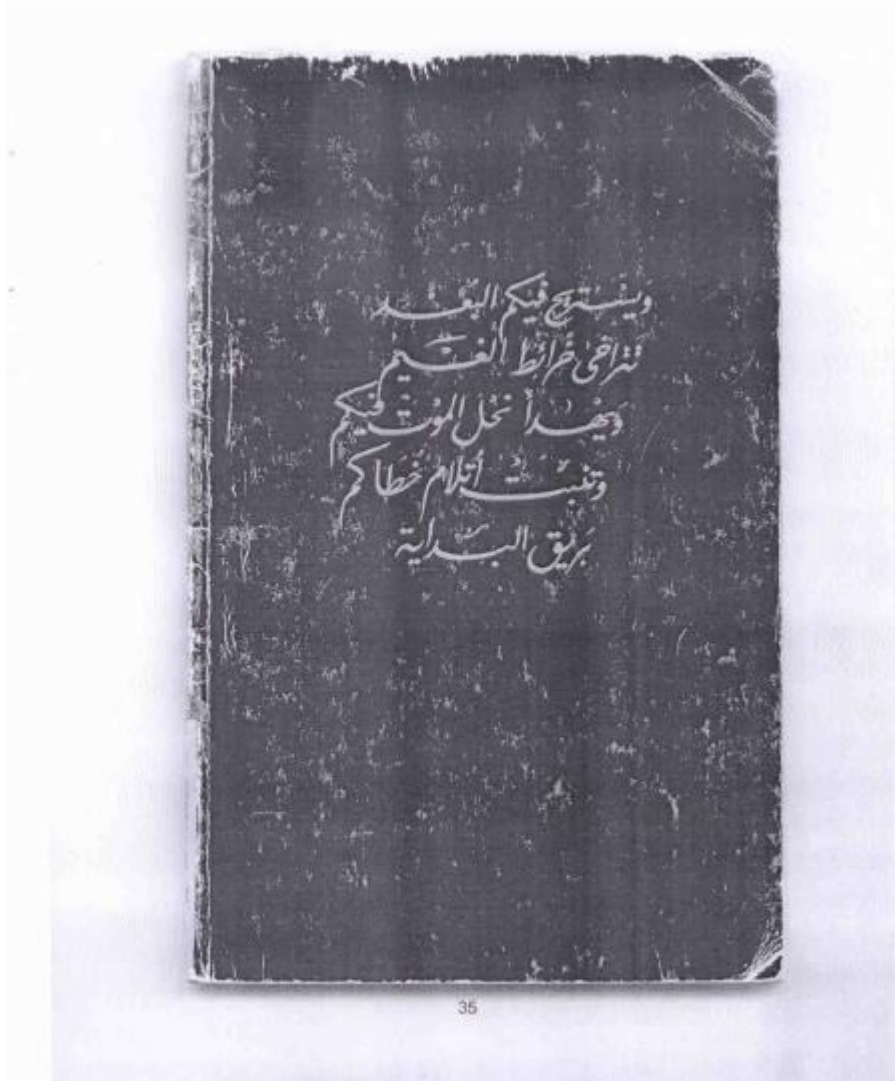 ويستريح فيكم البعد
تتراخى خرائط الغيم
ويهدأ نحل الموت فيكم
وتنبت أتلام خطاكم
بريق البداية
35